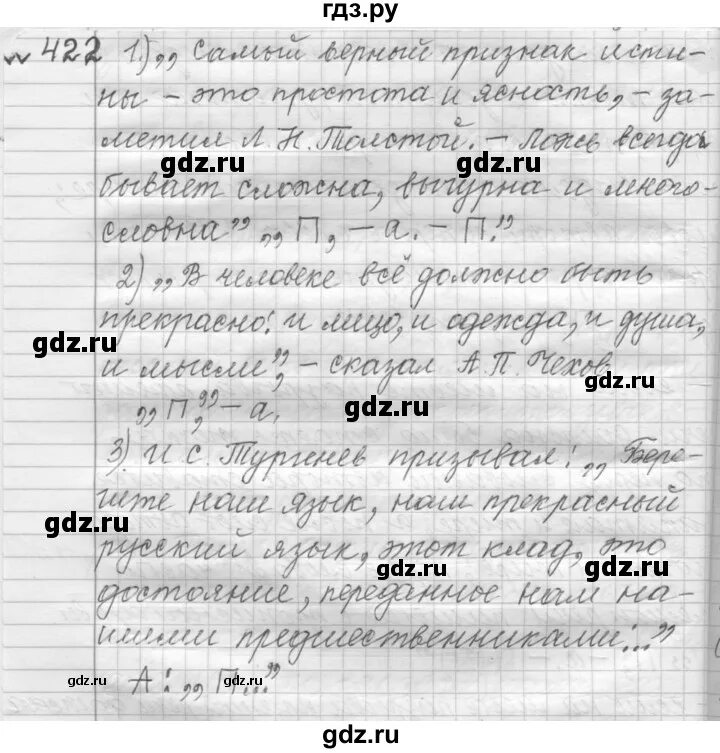 гдз.ру
№ 422 1) „ Самый верный признак исти-
ны – это простота и ясность, – за-
метил Л. Н. Толстой. – Ложь всегда
gdz.ru gdz.ru
бывает сложна, вычурна и много-
словна” „ П, – а. – П.”
2) „ В человеке всё должно быть
gdz.ru
прекрасно: и лицо, и одежда, и душа,
и мысли”, – сказал А. П. Чехов.
gdz.ru
„ П”, – а. gdz.ru
3) И. С. Тургенев призывал: „ Бере-
гите наш язык, наш прекрасный
gdz.ru
русский язык, этот клад, это
gdz.ru gdz.ru
достояние, переданное нам на-
шими предшественниками...”
gdz.ru А: „ П...” gdz.ru
gdz.ru